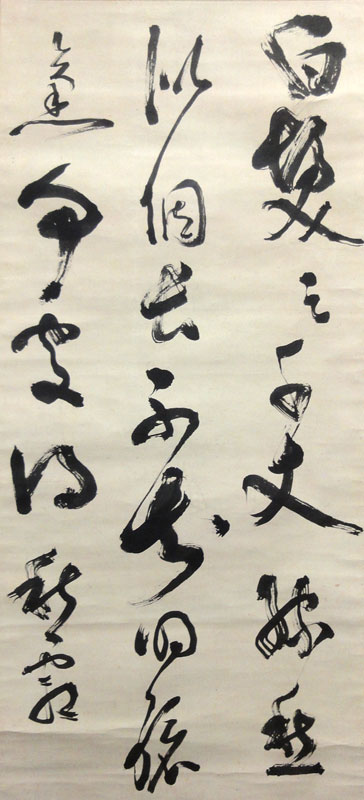 白髮三千丈緣愁
似個長不知明鏡
裏何處得秋霜